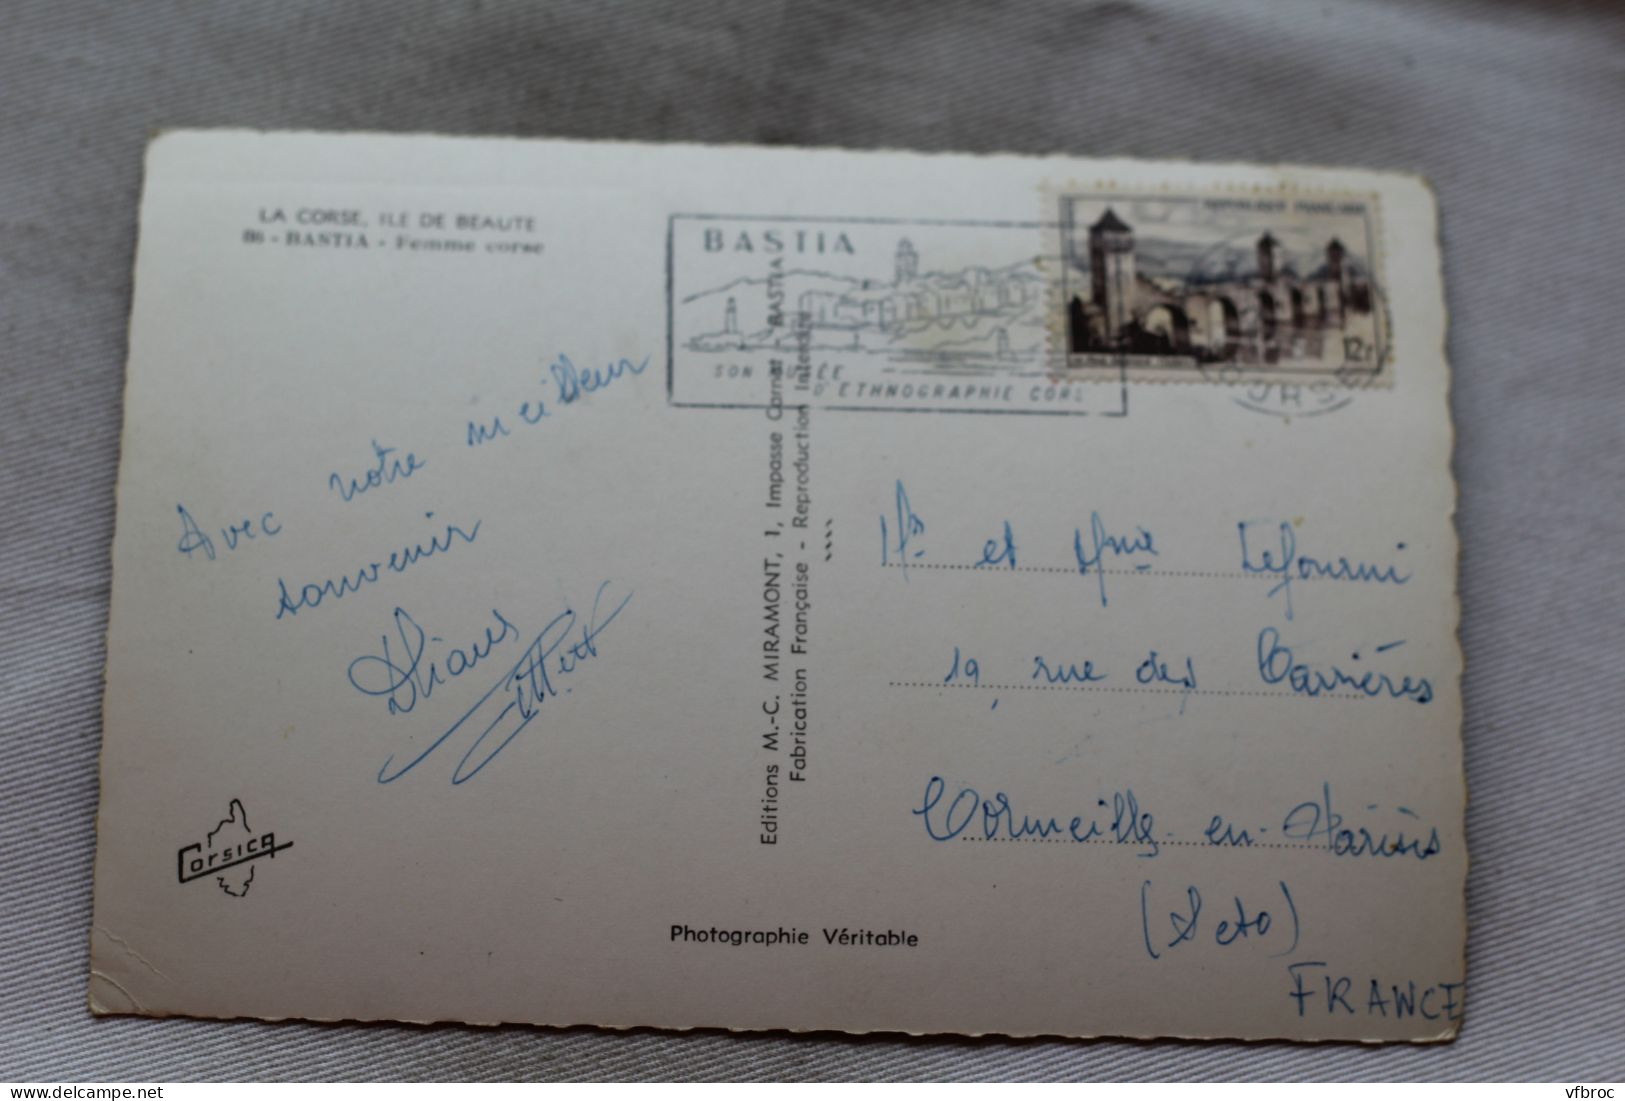 LA CORSE, ILE DE BEAUTE
86 - BASTIA - Femme corse
BASTIA
SON MUSÉE
D'ETHNOGRAPHIE CORSE
REPUBLIQUE FRANÇAISE
12F
CORSE
Avec notre meilleur
souvenir
Editions M.-C. MIRAMONT, 1, Impasse Carnot - BASTIA
Fabrication Française - Reproduction Interdite
Mr et Mme Lefourni
19, rue des Carrières
Cormeilles-en-Parisis
(S et O)
FRANCE
Corsica
Photographie Véritable
delcampe.net
vfbroc